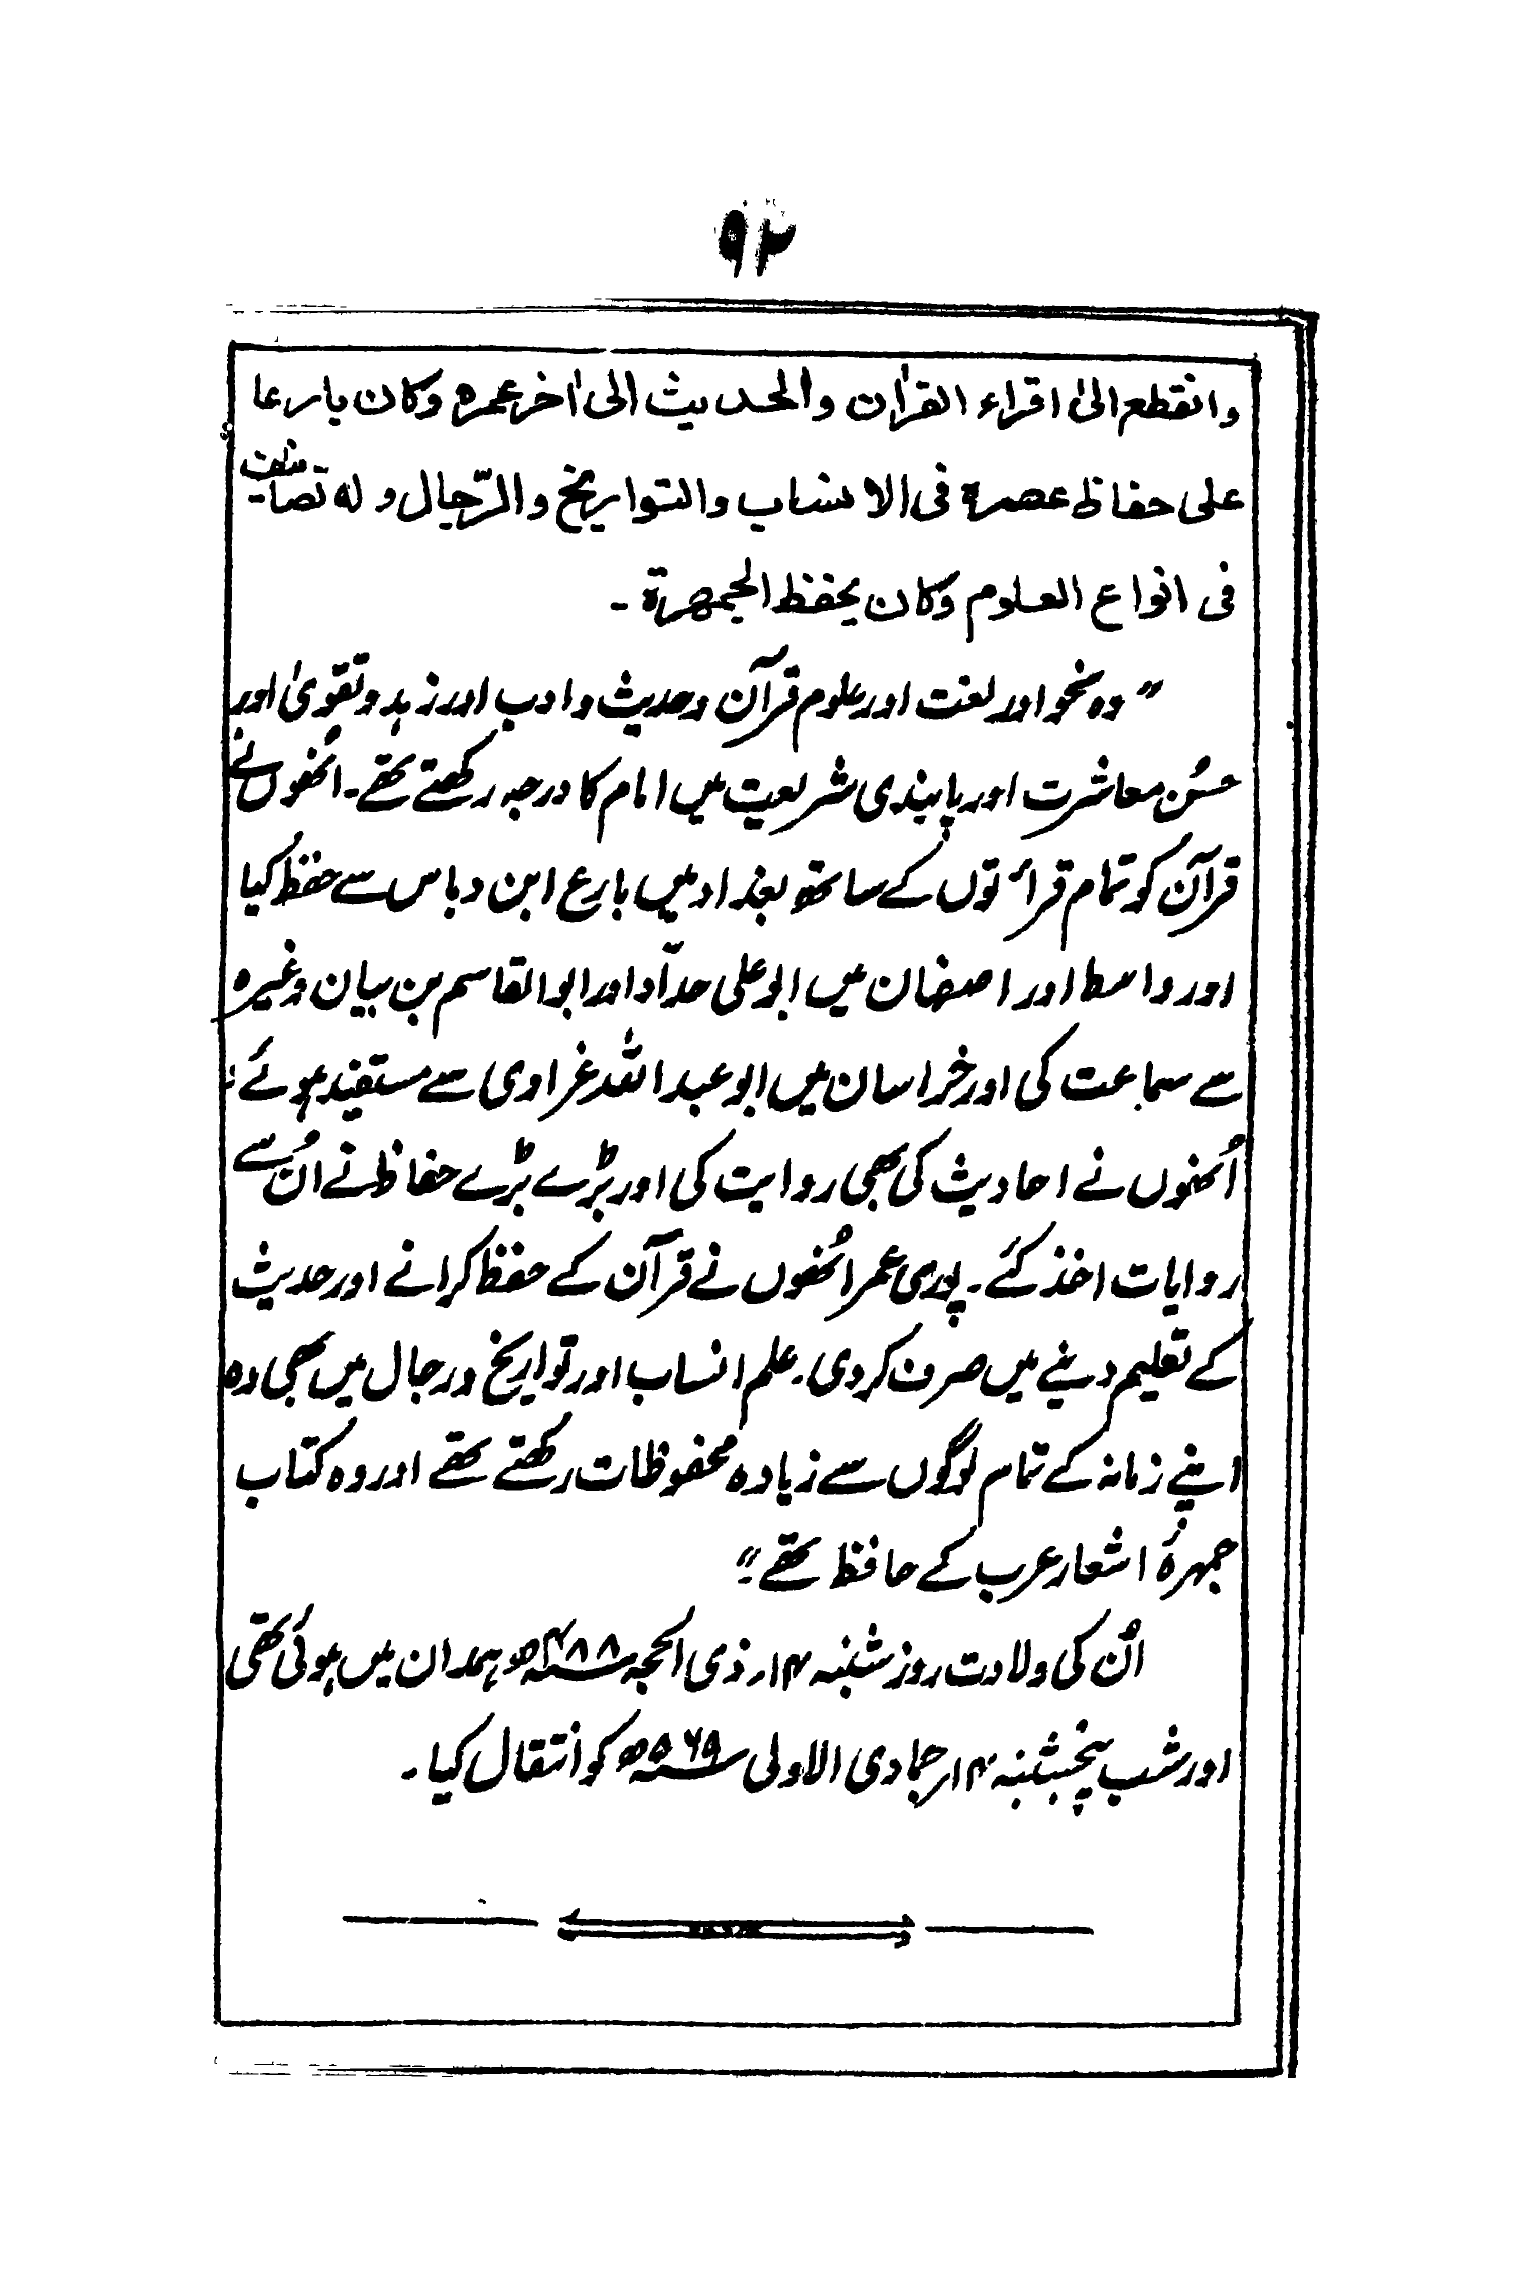 ۹۲
وانقطع الیٰ اقراء القراٰن والحدیث الی اٰخر عمرہ وکان بارعا
علی حفاظ عصرہ فی الانساب والتواریخ والرّجال و لہ تصانیف
فی انواع العلوم وکان یحفظ الجمھرۃ ۔
”وہ نحو اور لغت اور علوم قرآن وحدیث و ادب اور زہد و تقویٰ اور
حسُن معاشرت اور پابندی شریعت میں امام کا درجہ رکھتے تھے۔ انُھوں نے
قرآن کو تمام قرأتوں کے ساتھ بغداد میں بارع ابن دباس سے حفظ کیا
اور واسط اور اصفہان میں ابو علی حدّاد اور ابو القاسم بن بیان وغیرہ
سے سماعت کی اور خراسان میں ابو عبد اللہ غراوی سے مستفید ہوئے ؛
اُنھوں نے احادیث کی بھی روایت کی اور بڑے بڑے حفاظ نے انُ سے
روایات اخذ کئے ۔ پوری عمر انُھوں نے قرآن کے حفظ کرانے اور حدیث
کے تعلیم دینے میں صرف کر دی ۔ علم انساب اور تواریخ و رجال میں بھی وہ
اپنے زمانہ کے تمام لوگوں سے زیادہ محفوظات رکھتے تھے اور وہ کتاب
جمہرۂ اشعار عرب کے حافظ تھے ؛“
انُ کی ولادت روز شنبہ ۱۴؍ ذی الحجہ ۴۸۸؁ھ ہمدان میں ہوئی تھی
اور شب پنجشنبہ ۱۴؍ جمادی الاولی ۵۶۹؁ھ کو انتقال کیا ۔